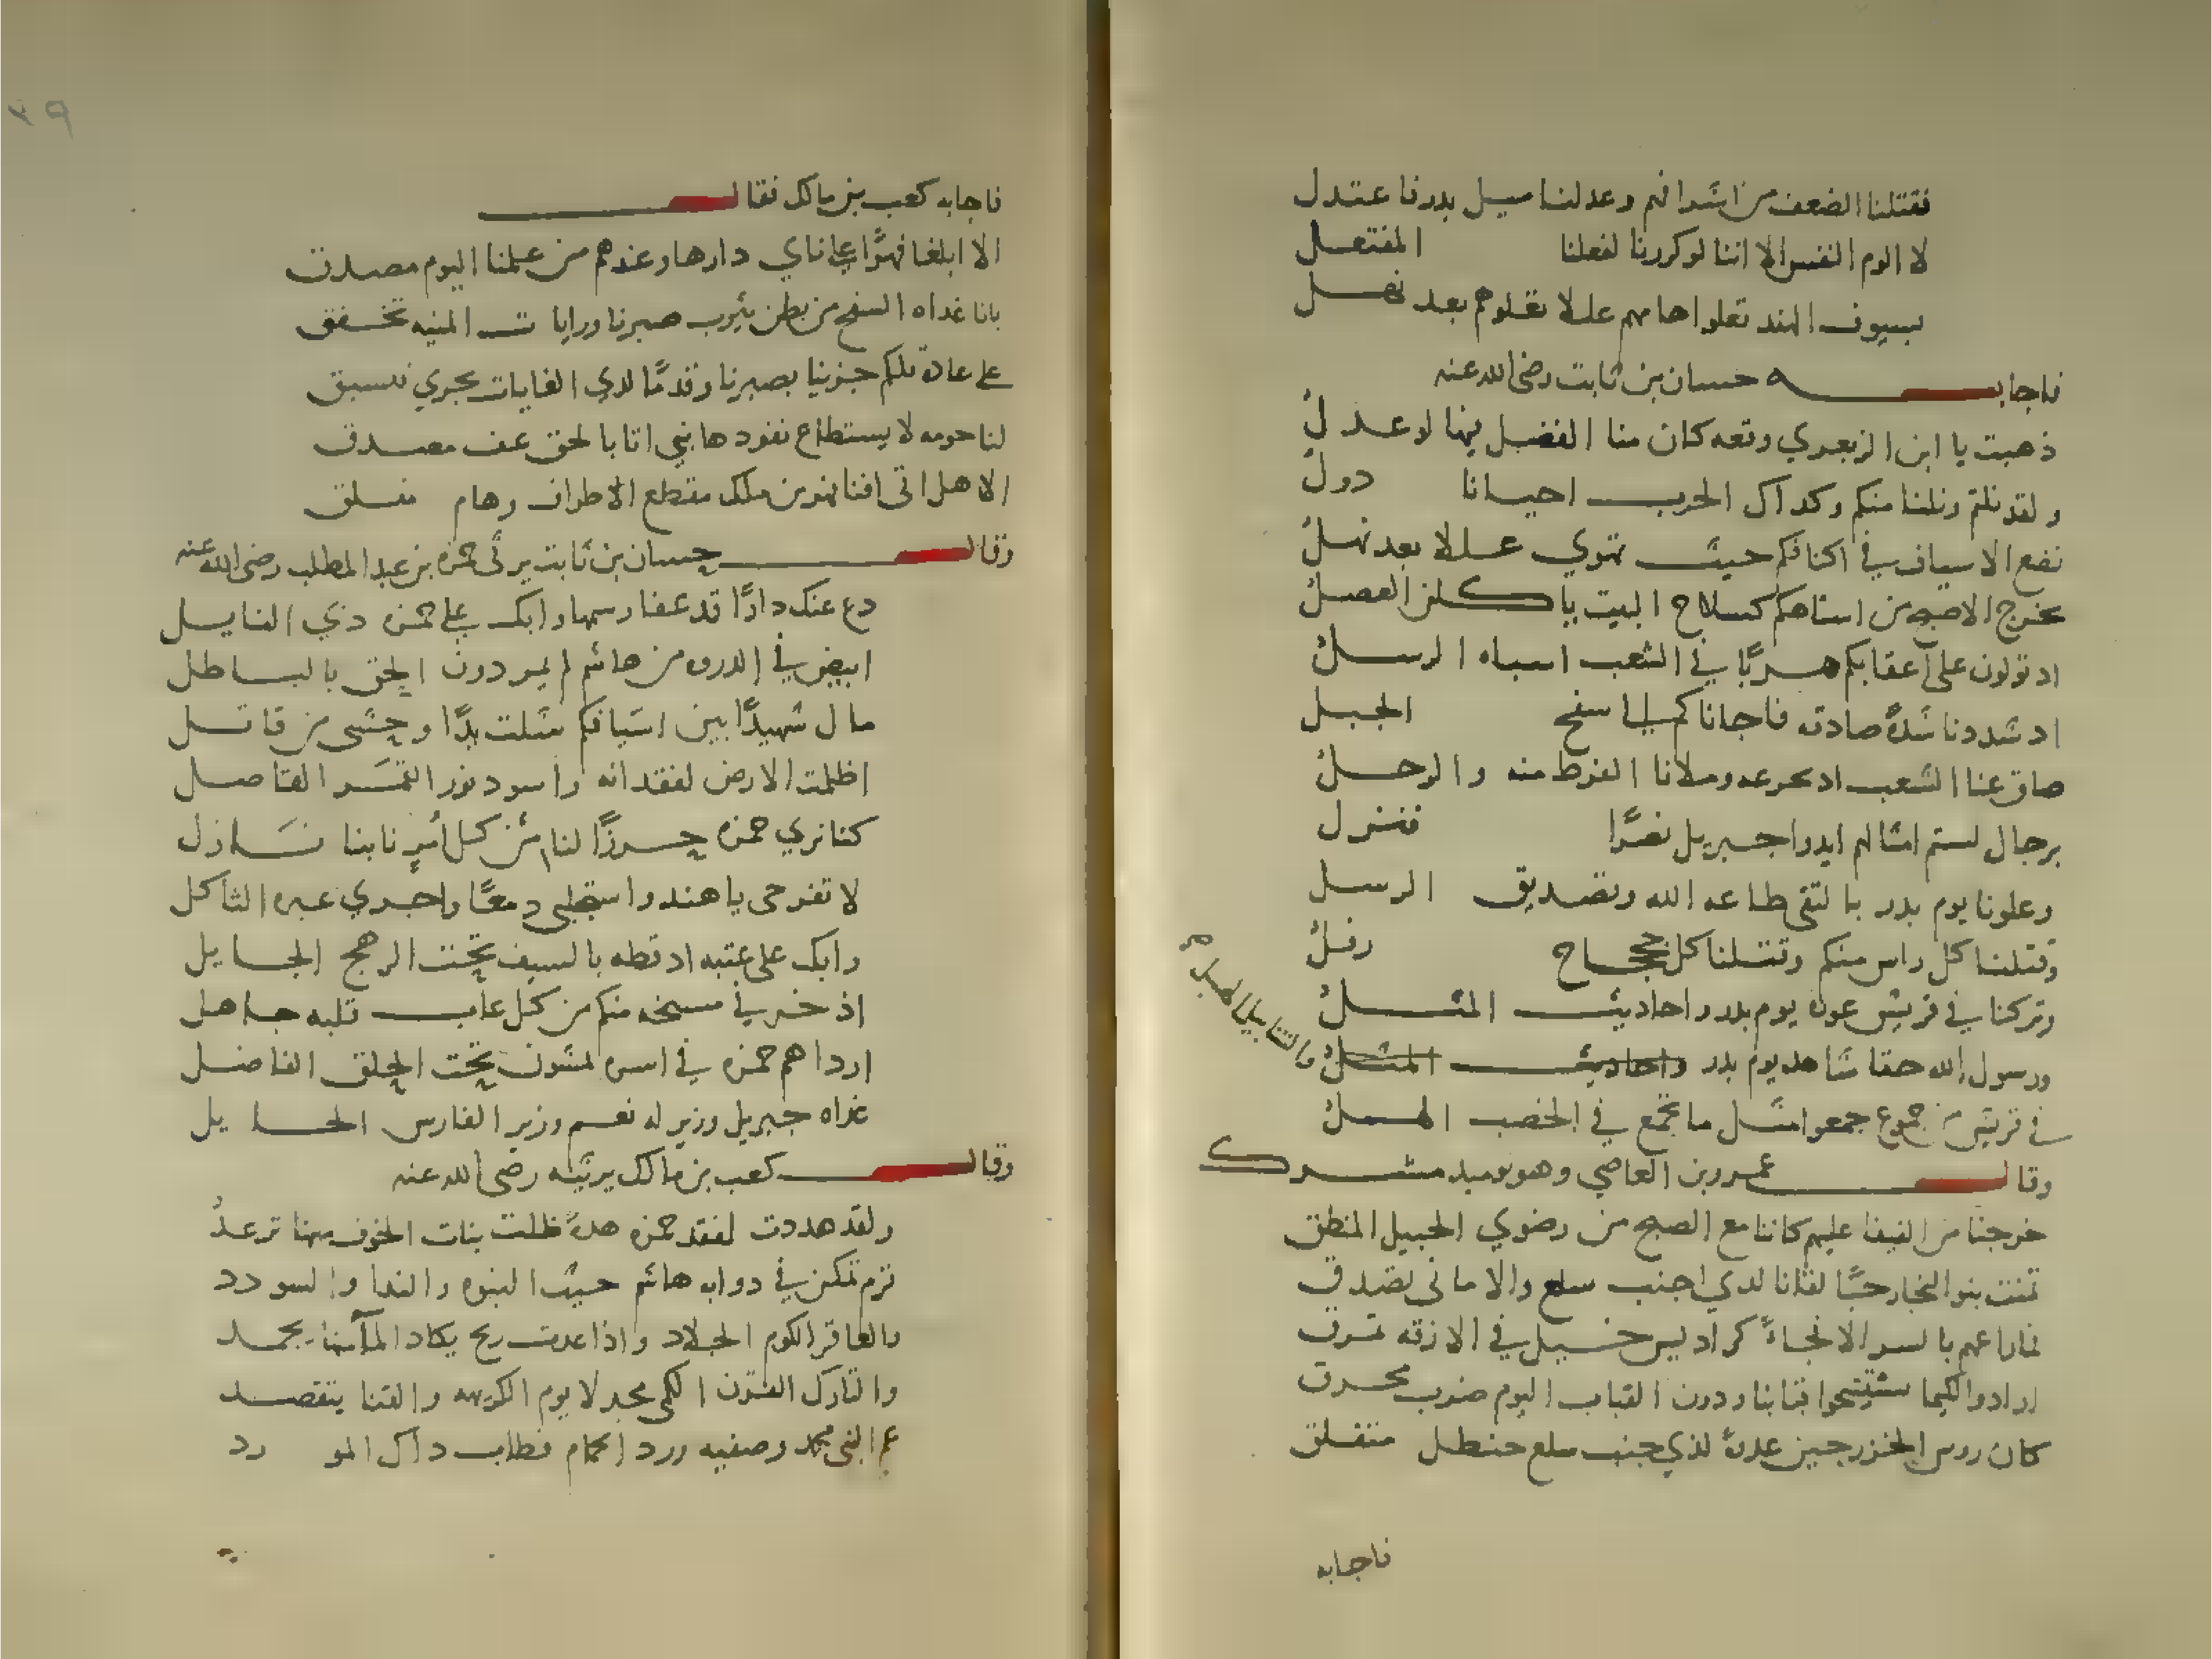 فقتلنا الضعف من اشرافهم وعدلنا ميل بدر فاعتدل
لا الوم النفس الا اننا لو كررنا لفعلنا المفتعل
بسيوف الهند تعلوا هامهم عللا تعلوهم بعد نهل
فاجابه حسان بن ثابت رضى الله عنه
ذهبت يا ابن الزبعري وقعه كان منا الفضل فيها لو عدل
ولقد نلتم ونلنا منكم وكداك الحرب احيانا دول
نضع الاسياف في اكتافكم حيث نهوي عللا بعد نهل
نخرج الاصبح من استاهكم كسلاح البيت ياكلن العصل
اد تولون على اعقابكم هربًا في الشعب اسباه الرسل
اد شددنا شدة صادقه فاجاناكم الى اسفح الجبل
ضاق عنا الشعب اد نجزعه وملانا الفرط منه والرحل
برجال لستم امثالهم ايدوا جبريل نصرًا فنزل
وعلونا يوم بدر بالتقى طاعه الله وتصديق الرسل
وقتلنا كل راس منكم وقتلنا كل جحجاح رفل
وتركنا في قريش عورة يوم بدر واحاديث المثل
ورسول الله حقا شاهد يوم بدر واحاديث المثل والتنابيل الهبل
في قريش من جموع جمعوا مثل ما تجمع في الخصب الهمل
وقال عمرو بن العاصي وهو يوميد مشرك
خرجنا من الفيفا عليهم كاننا مع الصبح من رضوي الحبيل المنطق
تمنت بنو النجار جهلا لقانا لدي جنب سلع والاماني تصدق
فما راعهم بالسر الا فجاءة كراديس خيل في الازقه تمرق
ارادوا لكيما يستبيحوا قبابنا ودون القباب اليوم ضرب محرق
كان روس الخزرجين غدوة لذي جنب سلع حنظل متفلق
فاجابه
٣٩
فاجابه كعب بن مالك فقال
الا ابلغا فهرًا على ناي دارها وعندهم من علمنا اليوم مصدق
بانا غداه السفح من بطن يثرب صبرنا ورايات المنيه تخفق
على عادة تلكم جزينا بصبرنا وقدمًا لدي الغايات نجري فنسبق
لنا حومه لا يستطاع نفودها نبي اتا بالحق عف مصدق
الا هل اتى افنا فهر بن ملك مقطع الاطراف وهام مفلق
وقال حسان بن ثابت يرثى حمزه بن عبد المطلب رضى الله عنه
دع عنك دارًا قد عفا رسمها وابك على حمزه ذي النايل
ابيض في الدروه من هاشم لم يمر دون الحق بالباطل
مال شهيدًا بين اسيافكم شلت يدًا وحشى من قاتل
اظلمت الارض لفقدانه واسود نور القمر الفاصل
كنا نري حمزه حرزًا لنا من كل أمر نابنا نازل
لا تفرحى يا هند واستجلبي دمعًا واجري عبره الثاكل
وابك على عتبه اد قطه بالسيف تحت الرهج الجايل
اذ خر في مسخه منكم من كل عات قلبه جاهل
ارداهم حمزه في اسره لمشون تحت الحلق الفاضل
غداه جبريل وزير له نعم وزير الفارس الحايل
وقال كعب بن مالك يرثيه رضى الله عنه
ولقد هددت لفقد حمزه هدة ظلت بنات الخوف منها ترعد
قرم تمكن في دواب هاشم حيث النبوه والندا والسودد
والعاقر الكوم الجلاد واذا عدت ريح يكاد المآ منها يجمد
والتارك القرن الكمى مجدلا يوم الكريهه والقنا يتقصد
عم النبي محمد وصفيه ورد الحمام فطاب داك المورد